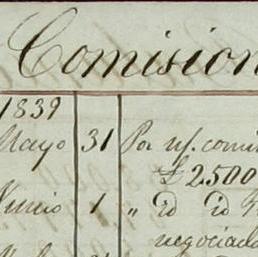 Comision
1839
Mayo 31 Por n/. comi
£ 2500
Junio 1 " id id
negociad